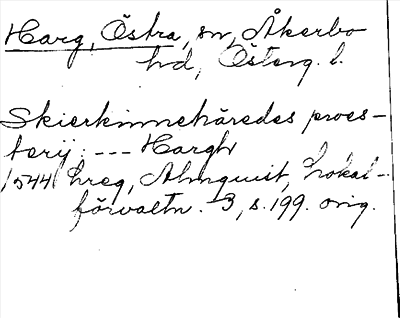 Harg, Östra, sn, Åkerbo
hd, Österg. l.
Skierkinnehäredes proes-
terij: --- Hargh
1544 hreg, Almquist, Lokal-
förvaltn. 3, s. 199. orig.